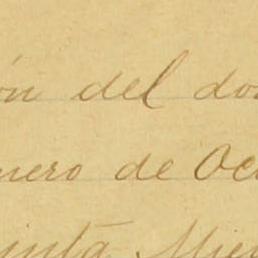 ón del do
mero de Oc
inta Mier